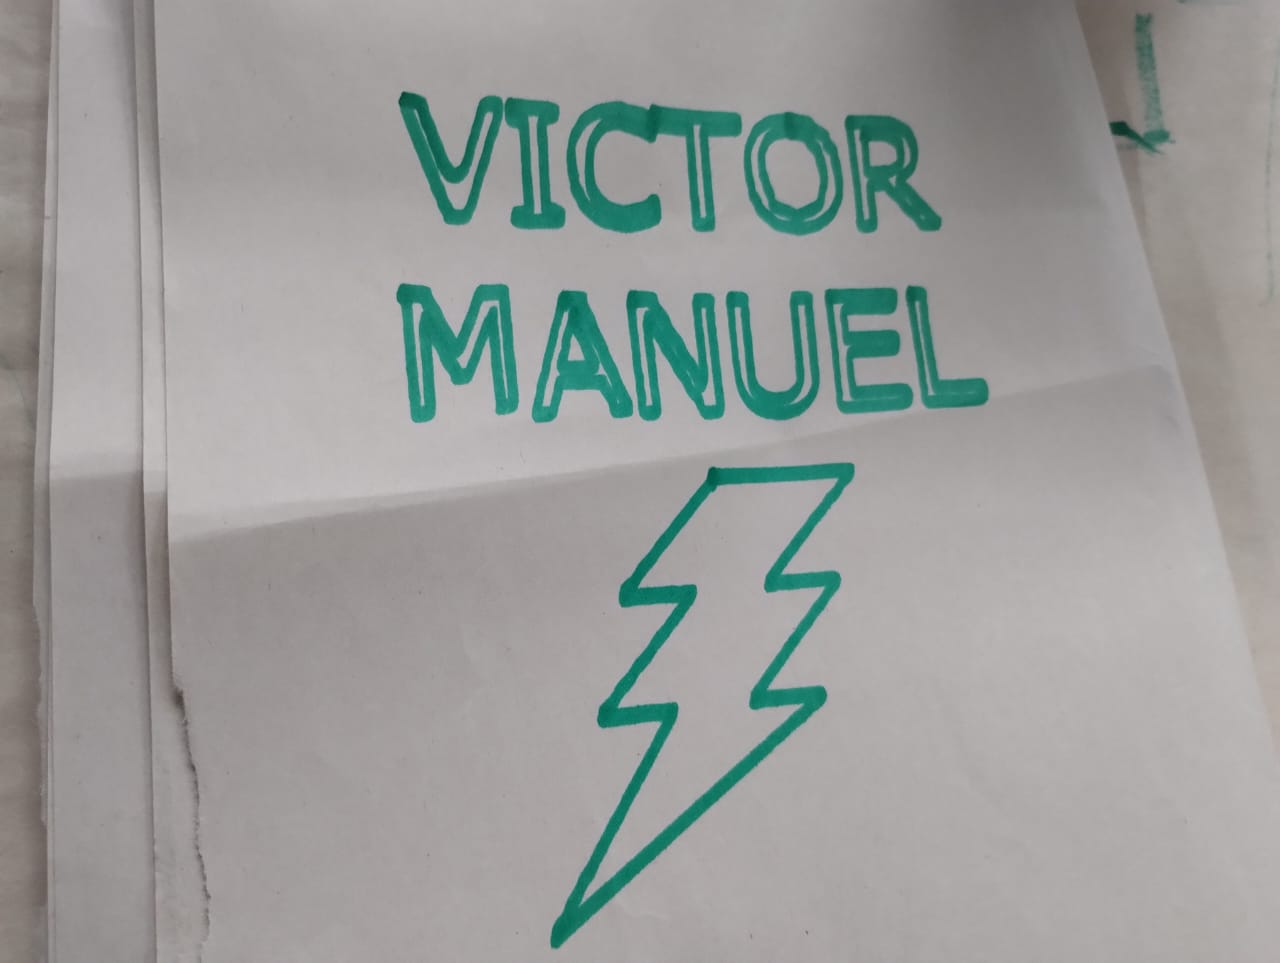 VICTOR
MANUEL